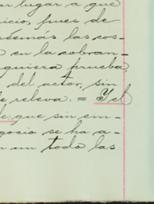 en lugar a que
icio, pues de
demás las cos-
en la cobran-
quiera prueba
del actor, sin
le releva. = Y el
de que sin em-
gocio se ha a-
n en todo las